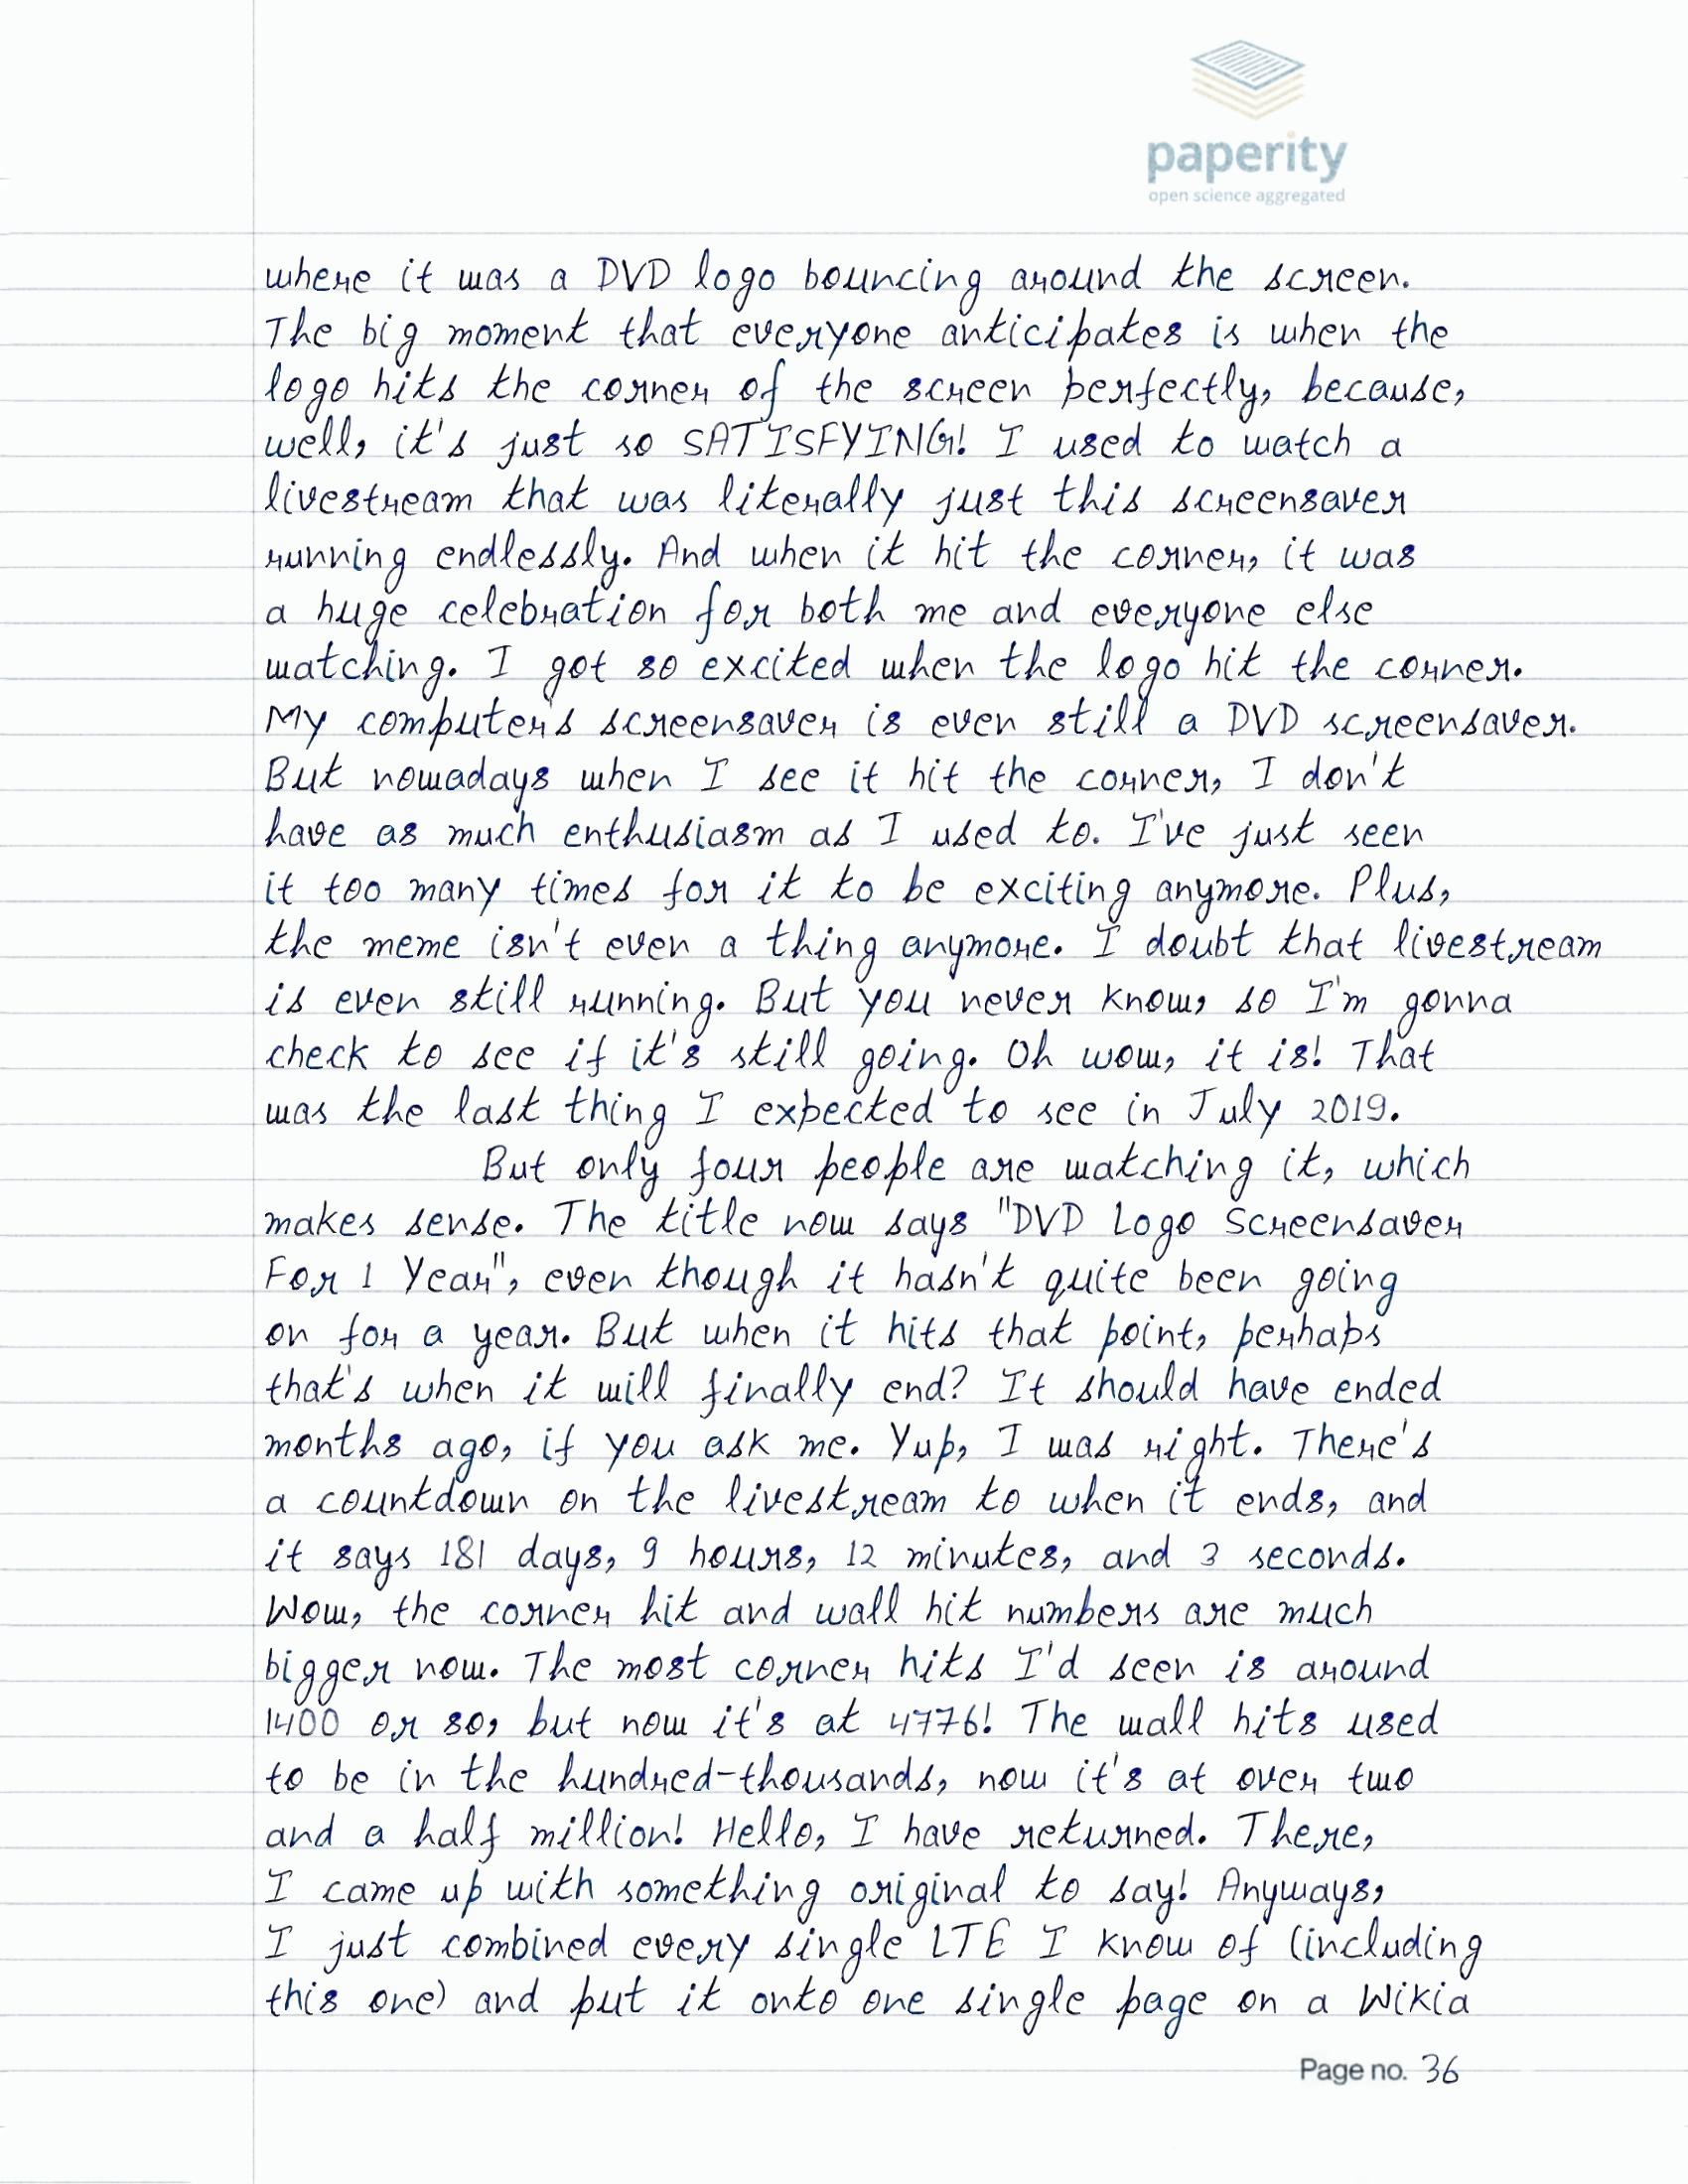 paperity
open science aggregated
where it was a DVD logo bouncing around the screen.
The big moment that everyone anticipates is when the
logo hits the corner of the screen perfectly, because,
well, it's just so SATISFYING! I used to watch a
livestream that was literally just this screensaver
running endlessly. And when it hit the corner, it was
a huge celebration for both me and everyone else
watching. I got so excited when the logo hit the corner.
My computer's screensaver is even still a DVD screensaver.
But nowadays when I see it hit the corner, I don't
have as much enthusiasm as I used to. I've just seen
it too many times for it to be exciting anymore. Plus,
the meme isn't even a thing anymore. I doubt that livestream
is even still running. But you never know, so I'm gonna
check to see if it's still going. Oh wow, it is! That
was the last thing I expected to see in July 2019.
But only four people are watching it, which
makes sense. The title now says "DVD Logo Screensaver
For 1 Year", even though it hasn't quite been going
on for a year. But when it hits that point, perhaps
that's when it will finally end? It should have ended
months ago, if you ask me. Yup, I was right. There's
a countdown on the livestream to when it ends, and
it says 181 days, 9 hours, 12 minutes, and 3 seconds.
Wow, the corner hit and wall hit numbers are much
bigger now. The most corner hits I'd seen is around
1400 or so, but now it's at 4776! The wall hits used
to be in the hundred-thousands, now it's at over two
and a half million! Hello, I have returned. There,
I came up with something original to say! Anyways,
I just combined every single LTE I know of (including
this one) and put it onto one single page on a Wikia
Page no. 36